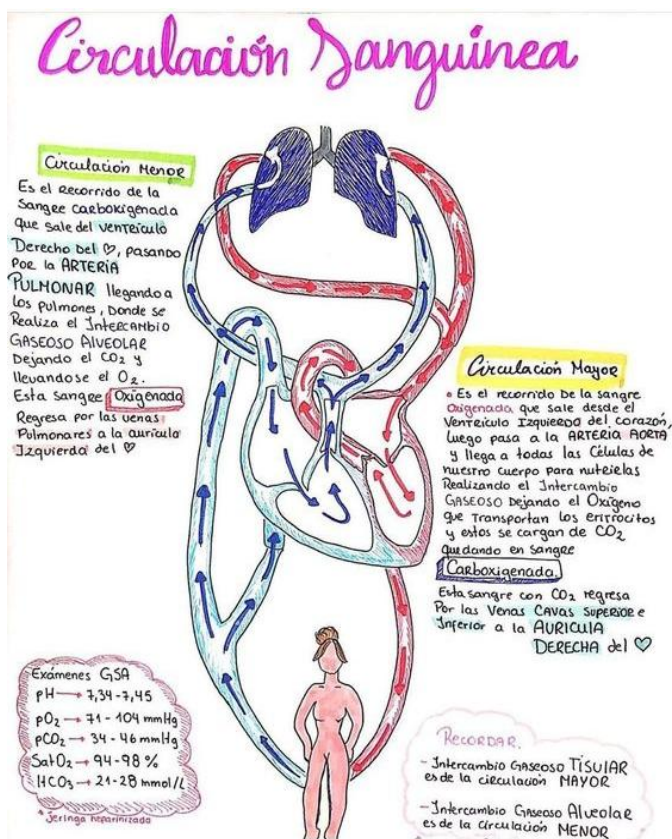 Circulación Sanguínea
Circulación Menor
Es el recorrido de la
Sangre carboxigenada
que sale del ventrículo
Derecho del ♡, pasando
Por la ARTERIA
PULMONAR llegando a
los pulmones, Donde se
Realiza el Intercambio
GASEOSO ALVEOLAR
Dejando el CO₂ y
llevandose el O₂.
Esta sangre Oxigenada
Regresa por las venas
Pulmonares a la aurícula
Izquierda del ♡
Circulación Mayor
• Es el recorrido De la sangre
Oxigenada que sale desde el
Ventrículo Izquierdo del corazón,
luego pasa a la ARTERIA AORTA
y llega a todas las Células de
nuestro cuerpo para nutrirlas
Realizando el Intercambio
GASEOSO Dejando el Oxígeno
que Transportan los eritrocitos
y estos se cargan de CO₂
quedando en Sangre
Carboxigenada.
Esta sangre con CO₂ regresa
Por las Venas CAVAS SUPERIOR e
Inferior a la AURICULA
DERECHA del ♡
Exámenes GSA
pH → 7,34-7,45
pO₂ → 71 - 104 mmHg
pCO₂ → 34 - 46 mmHg
SatO₂ → 94-98 %
HCO₃ → 21-28 mmol/L
* Jeringa heparinizada
RECORDAR.
- Intercambio Gaseoso TISULAR
es de la circulación MAYOR
- Intercambio Gaseoso Alveolar
es de la Circulación MENOR